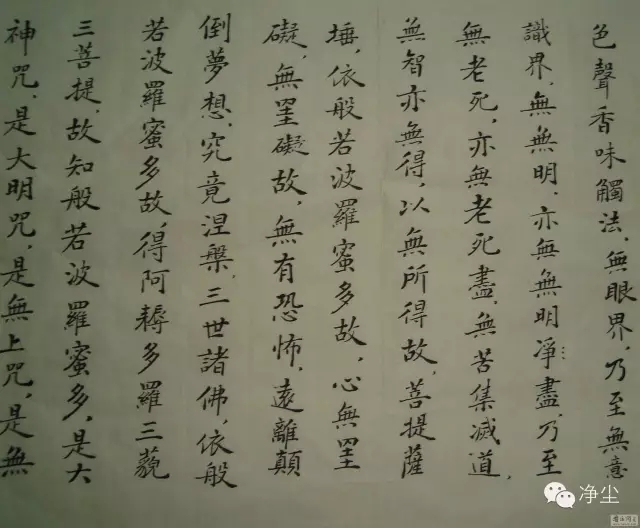 色聲香味觸法,無眼界,乃至無意
識界,無無明,亦無無明凈盡,乃至
無老死,亦無老死盡,無苦集滅道,
無智亦無得,以無所得故,菩提薩
埵,依般若波羅蜜多故,心無罣
礙,無罣礙故,無有恐怖,遠離顛
倒夢想,究竟涅槃,三世諸佛,依般
若波羅蜜多故,得阿耨多羅三藐
三菩提,故知般若波羅蜜多,是大
神咒,是大明咒,是無上咒,是無
净尘